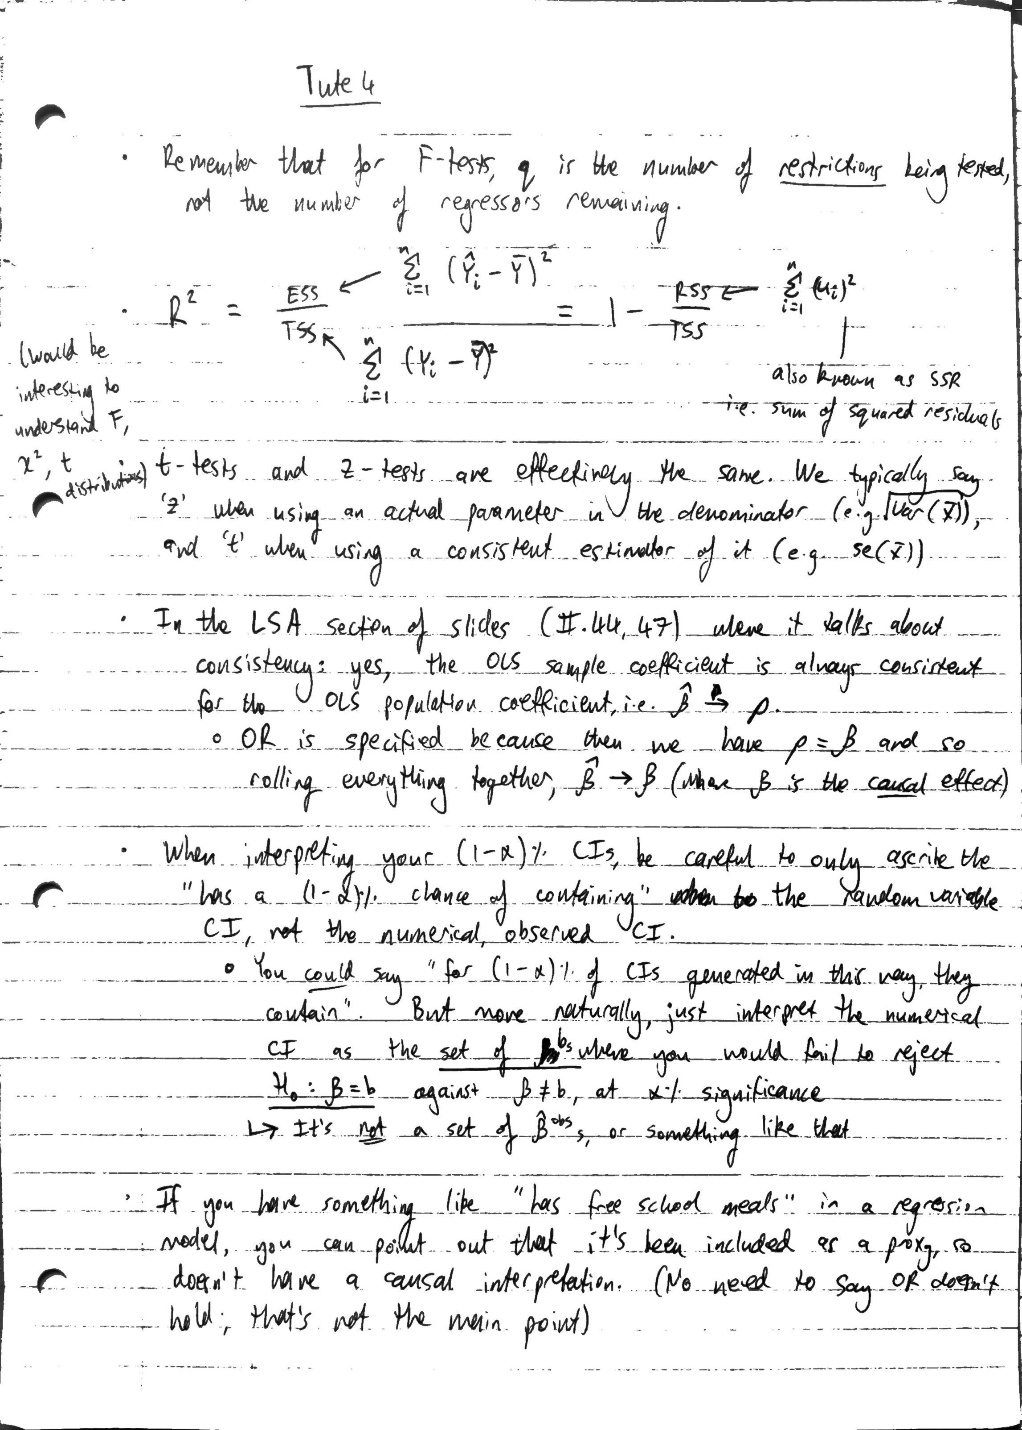 Tute 4
• Remember that for F-tests, q is the number of restrictions being tested,
not the number of regressors remaining.
• R² = ESS/TSS ← n Σ i=1 (Ŷᵢ - Ȳ)² = 1 - RSS/TSS ← n Σ i=1 (uᵢ)²
n Σ i=1 (Yᵢ - Ȳ)²
also known as SSR
i.e. sum of squared residuals
(would be
interesting to
understand F,
χ², t
distributions)
• t-tests and z-tests are effectively the same. We typically say
'z' when using an actual parameter in the denominator (e.g. √Var(X̄)),
and 't' when using a consistent estimator of it (e.g. se(x̄))
• In the LSA section of slides (II.44, 47) where it talks about
consistency: yes, the OLS sample coefficient is always consistent
for the OLS population coefficient, i.e. β̂ →p ρ.
∘ OR is specified because then we have ρ = β and so
rolling everything together, β̂ → β (where β is the causal effect)
• When interpreting your (1-α)% CIs, be careful to only ascribe the
"has a (1-α)% chance of containing" to the random variable
CI, not the numerical, observed CI.
∘ You could say "for (1-α)% of CIs generated in this way, they
contain". But more naturally, just interpret the numerical
CI as the set of bs where you would fail to reject
H₀: β = b against β ≠ b, at α% significance
↳ It's not a set of β̂ᵒᵇˢs, or something like that
• If you have something like "has free school meals" in a regression
model, you can point out that it's been included as a proxy, so
doesn't have a causal interpretation. (No need to say OR doesn't
hold; that's not the main point)